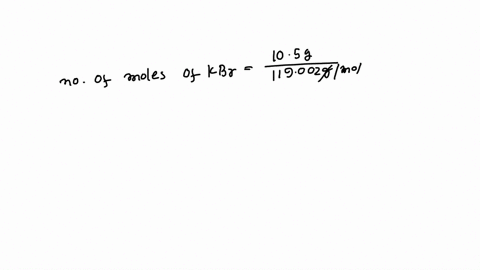 no. of moles of KBr = 10.5g
119.002g/mol